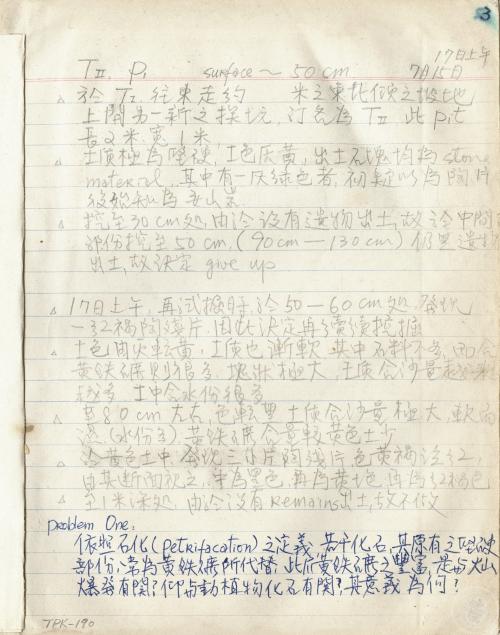 3
17日上午
TII, P1 surface ~ 50 cm 7月15日
△ 於 TI, 往東走約 米之東北傾之坡地
上開另一新之探坑, 訂名為 TII 此 pit
長2米, 寬1米
△ 土質極為堅硬, 土色灰黃, 出土石塊均為 stone
material, 其中有一灰綠色者, 初疑以為陶片
後始知為
△ 挖至30 cm處, 由於沒有遺物出土, 故於中間
部份挖至50 cm, (90cm — 130cm) 仍無遺物
出土, 故決定 give up
17日上午, 再試掘時, 於50—60 cm 處, 發現
一紅褐陶殘片, 因此決定再繼續挖掘
△ 土色由灰轉黃, 土質也漸軟, 其中石料不多, 而含
黃鉄礦則很多, 塊狀極大, 土質含沙量
較多, 土中含水份很多
△ 至80 cm左右, 色較黑, 土質含沙量極大, 軟而
濕 (水份多) 黃鉄礦含量較黃色土少
△ 於黃色土中, 發現三小片陶殘片, 色黃褐泛紅,
由其斷面視之, 半為黑色, 再為黃地, 再為紅褐色
△ 至1米深處, 由於沒有Remains出土, 故不做
Problem One:
依照石化 (petrifacation) 之定義, 若干化石, 其原有之堅硬
部份, 常為黃鉄礦所代替, 此所黃鉄礦之豐富是与火山
爆發有關? 抑与動植物化石有關? 其意義為何?
TPK-190